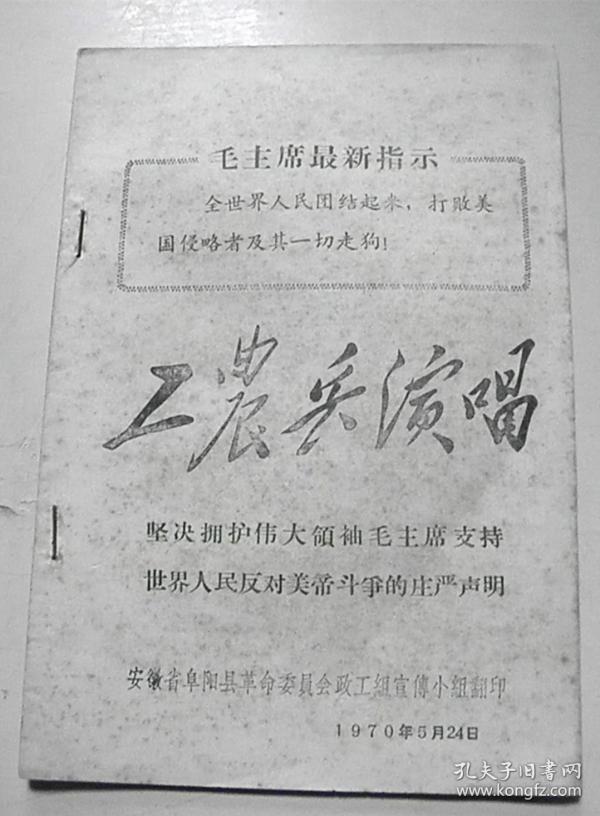 毛主席最新指示
全世界人民团结起来，打败美
国侵略者及其一切走狗！
工农兵演唱
坚决拥护伟大領袖毛主席支持
世界人民反对美帝斗爭的庄严声明
安徽省阜阳县革命委員会政工組宣傳小組翻印
1970年5月24日
孔夫子旧書网
www.kongfz.com